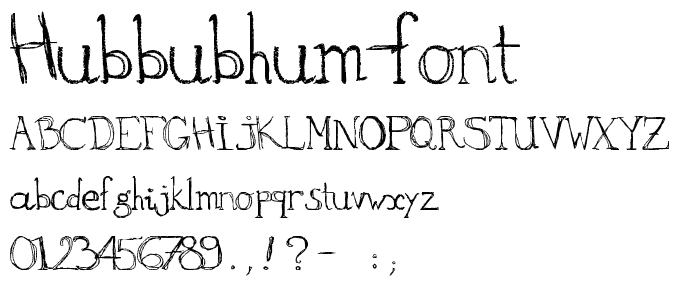 Hubbubhum-font
ABCDEFGHiJKLMNOPQRSTUVWXYZ
abcdefghijklmnopqrstuvwxyz
0123456789.,!?- :;